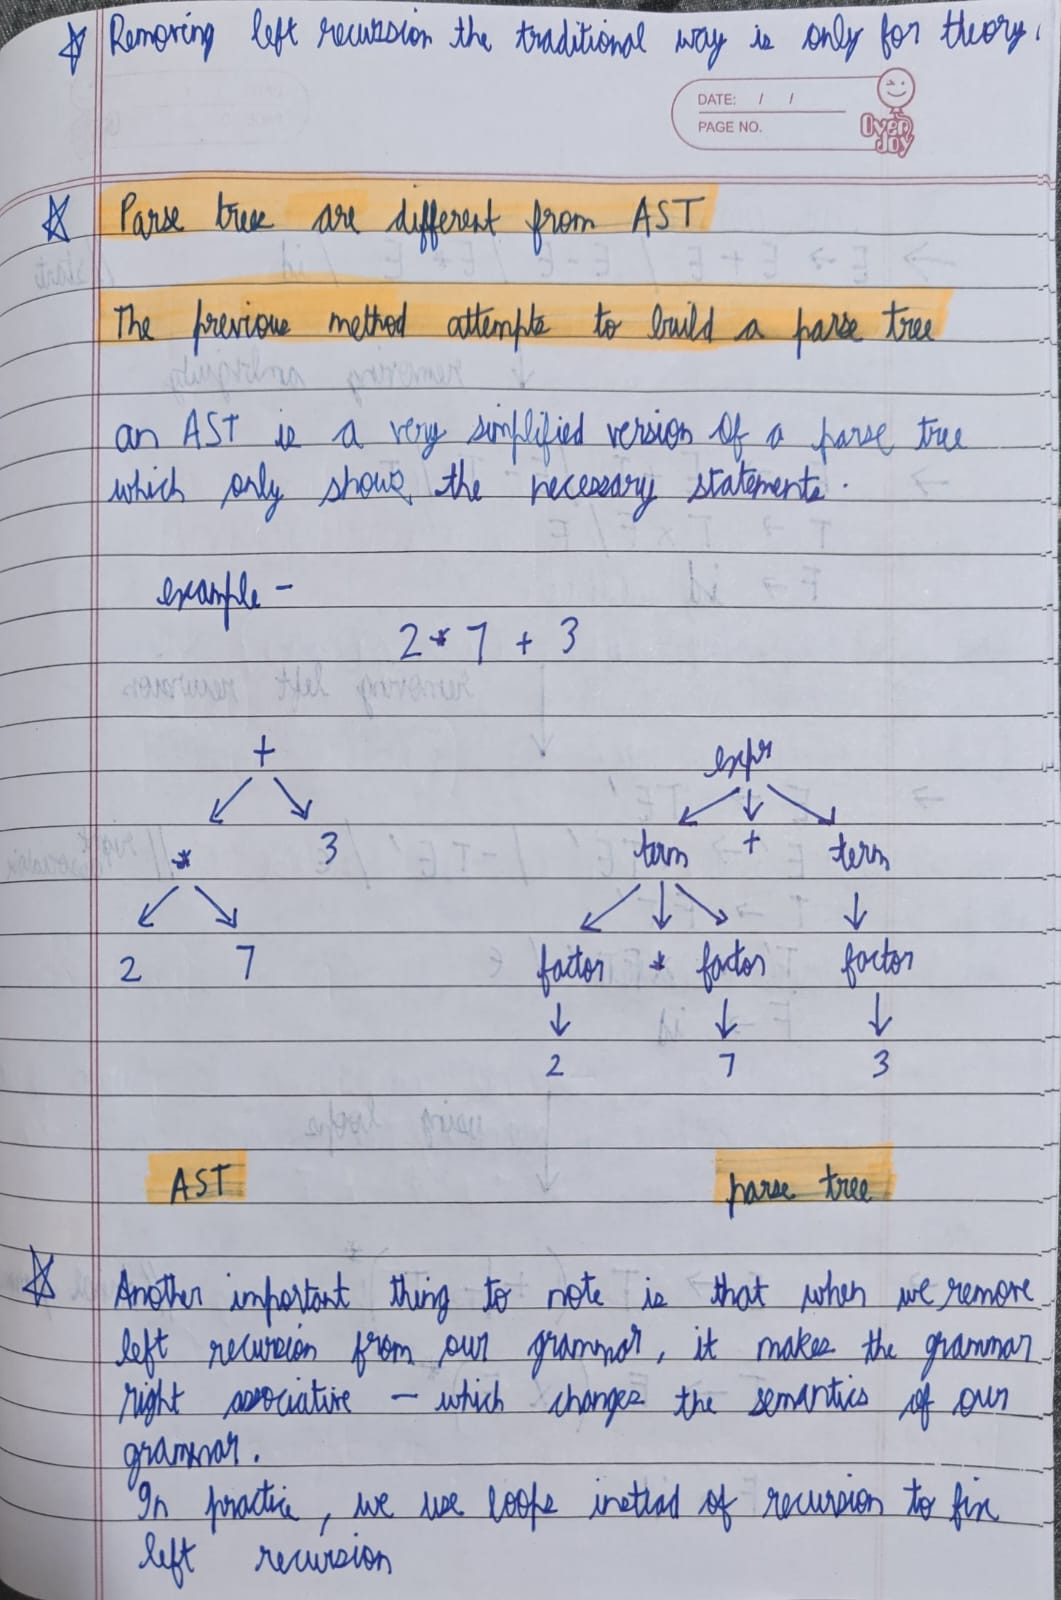 ☆ Removing left recursion the traditional way is only for theory.
DATE: / /
PAGE NO.
Over Joy
☆ Parse tree are different from AST
The previous method attempts to build a parse tree
an AST is a very simplified version of a parse tree
which only shows the necessary statements.
example -
2 * 7 + 3
+ expr
* 3 term + term
2 7 factor * factor factor
2 7 3
AST parse tree
☆ Another important thing to note is that when we remove
left recursion from our grammar, it makes the grammar
right associative - which changes the semantics of our
grammar.
In practice, we use loops instead of recursion to fix
left recursion